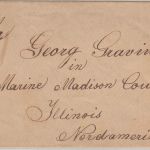 Georg Gravin
in
Marine Madison Cou
Illinois
Nordameri